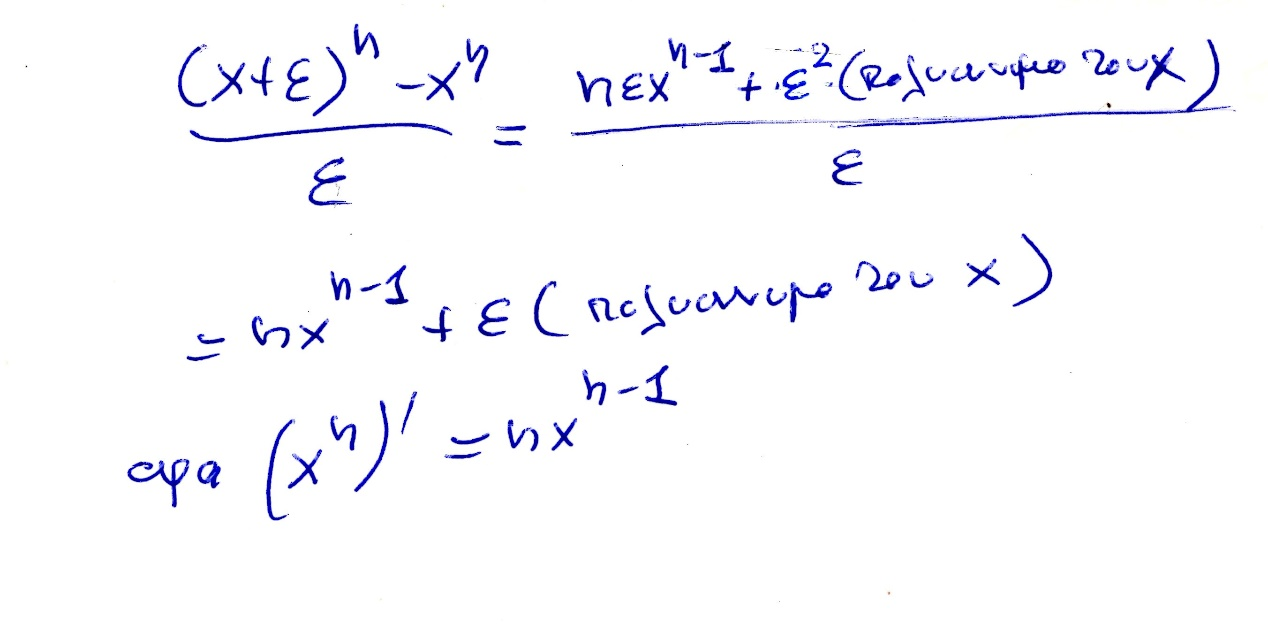 (x+ε)ⁿ - xⁿ / ε = nεxⁿ⁻¹ + ε² (πολυωνυμο του x) / ε
= nxⁿ⁻¹ + ε (πολυωνυμο του x)
αρα (xⁿ)' = nxⁿ⁻¹